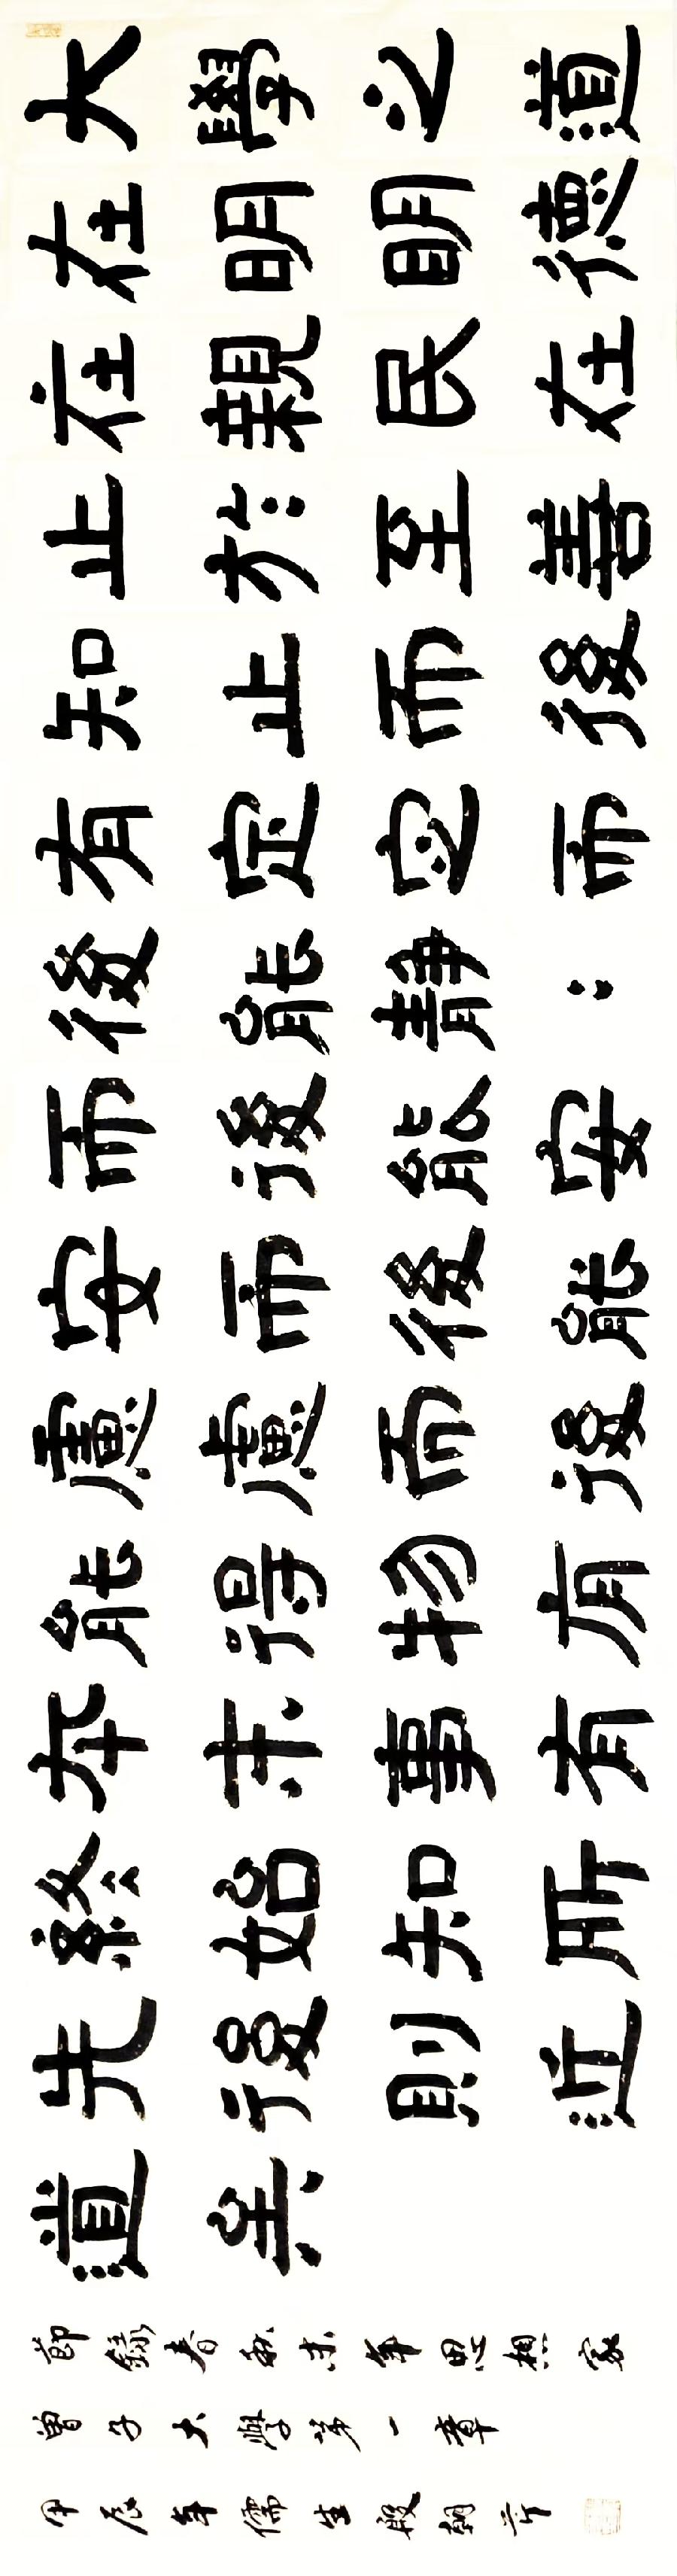 大學之道
在明明德
在親民在
止於至善
知止而後
有定定而
後能靜：
而後能安
安而後能
慮慮而後
能得物有
本末事有
終始知所
先後則近
道矣
節錄春秋末年思想家
曾子大學第一章
甲辰年儒生殷朝